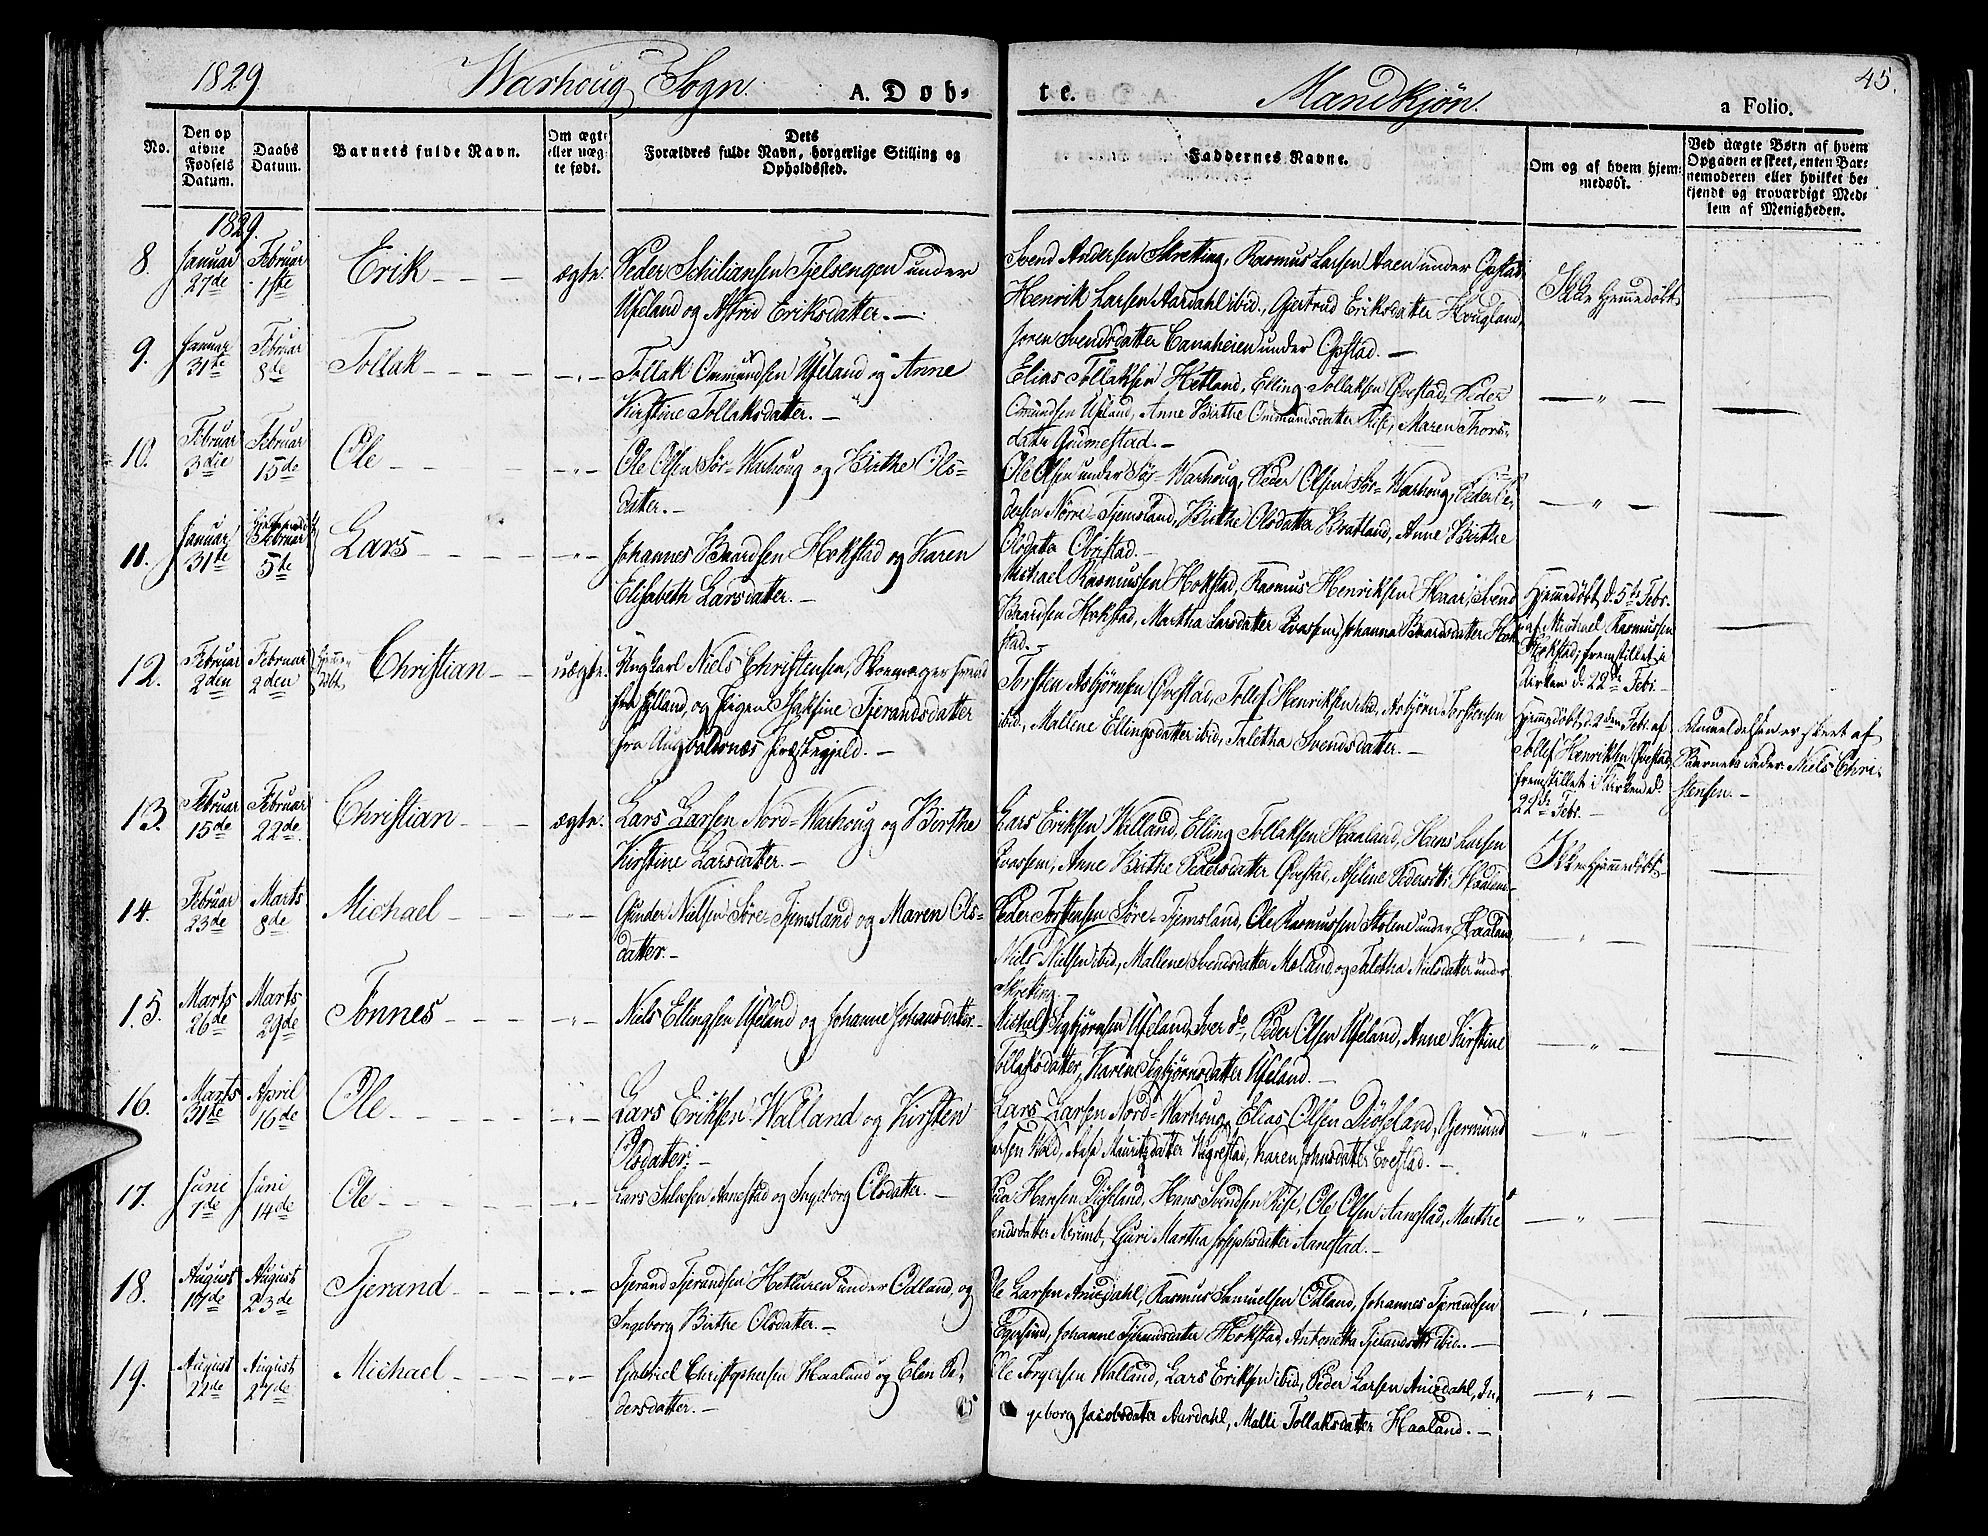 1829 Warhoug Sogn. A. Døb- te. Mandkjøn. a Folio. 45.
No.
Den op
givne
Fødsels
Datum.
Daabs
Datum.
Barnets fulde Navn.
Om ægte
eller uæg-
te født.
Dets
Forældres fulde Navn, borgerlige Stilling og
Opholdssted.
Faddernes Navne.
Om og af hvem hjem-
medøbt.
Ved uægte Børn af hvem
Opgaven er skeet, enten Bar-
nemoderen eller hvilket be-
kjendt og troværdigt Med-
lem af Menigheden.
1829.
8. Januar 27de Februar 1ste Erik ægte.
Peder Schiliansen Tjelsengen under
Useland og Astrid Eriksdatter.
Svend Andersen Skretting, Rasmus Larsen Aaen under Opstad
Henrik Larsen Aardahl ibid., Gjertrud Eriksdatter Hougland,
Joren Svendsdatter under Opstad.
Ikke hjemmedøbt
9. Januar 31te Februar 8de Tollak
Tollak Ommundsen Useland og Anne
Kirstine Tollaksdatter.
Elias Tollaksen Hetland, Elling Tollaksen Qvestad, Peder
Omundsen Useland, Anne Birthe Ommundsdatter Maren Thors-
datter
10. Februar 3die Februar 15de Ole
Ole Olsen Sør-Warhoug og Birthe Ols-
datter.
Ole Olsen under Sør-Warhoug, Peder Olsen Sør-Warhoug, Peder Pe-
dersen Nørre-Tjemsland, Birthe Olsdatter Bratland, Anne Birthe
Olsdatter Obrestad.
11. Januar 31te Februar 5te Lars
Johannes Baardsen Hokstad og Karen
Elisabeth Larsdatter.
Michael Rasmussen Hokstad, Rasmus Henriksen Haar, Svend
Baardsen Hokstad, Martha Larsdatter Johanna Baardsdatter Hok-
stad.
Hjemmedøbt d. 5te Febr.
af Michael Rasmussen
Hokstad, fremstillet i
Kirken d. 22de Febr.
12. Februar 2den Februar 2den Hjemmedøbt Christian uægte.
Ungkarl Niels Christensen, Skomager svend
fra Jylland, og Pigen Tjerandsdatter
fra Augvaldsnæs Præstegjeld.
Torsten Asbjørnsen Qvestad, Tollef Henriksen ibid, Asbjørn Torstensen
ibid, Mallene Ellingsdatter ibid, Talitha Svendsdatter.
Hjemmedøbt d. 2den Febr. af
Tollef Henriksen Qvestad,
fremstillet i Kirken d.
22de Febr.
Anmeldelsen er skeet af
Barnets Fader Niels Chri-
stensen.
13. Februar 15de Februar 22de Christian ægte.
Lars Larsen Nord-Warhoug og Birthe
Kirstine Larsdatter.
Lars Eriksen Walland, Elling Tollaksen Haaland, Hans Larsen
Anne Birthe Pedersdatter Qvestad,
Ikke hjemmedøbt
14. Februar 23de Marts 8de Michael
Gunder Nielsen Søre-Tjemsland og Maren Ols-
datter.
Peder Torstensen Søre-Tjemsland, Ole Rasmussen Stolene under Haaland,
Niels Nielsen ibid, Mallene Svendsdatter og Talitha Nielsdatter under
Skretting.
15. Marts 26de Marts 29de Tønnes
Niels Ellingsen Useland og Johanne Johansdatter
Michel Sigbjørnsen Useland, Iver do, Peder Olsen Useland, Anne Kirstine
Tollaksdatter, Karen Sigbjørnsdatter Useland.
16. Marts 31te April 16de Ole
Lars Eriksen Walland og Kirsten
Olsdatter.
Lars Larsen Nord-Warhoug, Elias Olsen Djøseland, Gjermund
Mauritzdatter Karen Johnsdatter
17. Juni 7de Juni 14de Ole
Lars Aanestad og Ingeborg Olsdatter.
Peder Hansen Djøseland, Hans Svendsen Ole Olsen Aanestad, Marthe
Guri Martha Josephsdatter Aanestad.
18. August 17de August 23de Tjerand
Tjerand Tjerandsen Hetluren under Odland, og
Ingeborg Birthe Olsdatter.
Ole Larsen Rasmus Samuelsen Odland, Johannes Tjerandsen
Egersund, Johanne Tjerandsdatter Hokstad, Antonetta ibid.
19. August 22de August 27de Michael
Gabriel Christophersen Haaland og Elen Pe-
dersdatter.
Ole Torgersen Walland, Lars Eriksen ibid, Peder Larsen In-
geborg Jacobsdatter Aardahl, Malli Tollaksdatter Haaland.